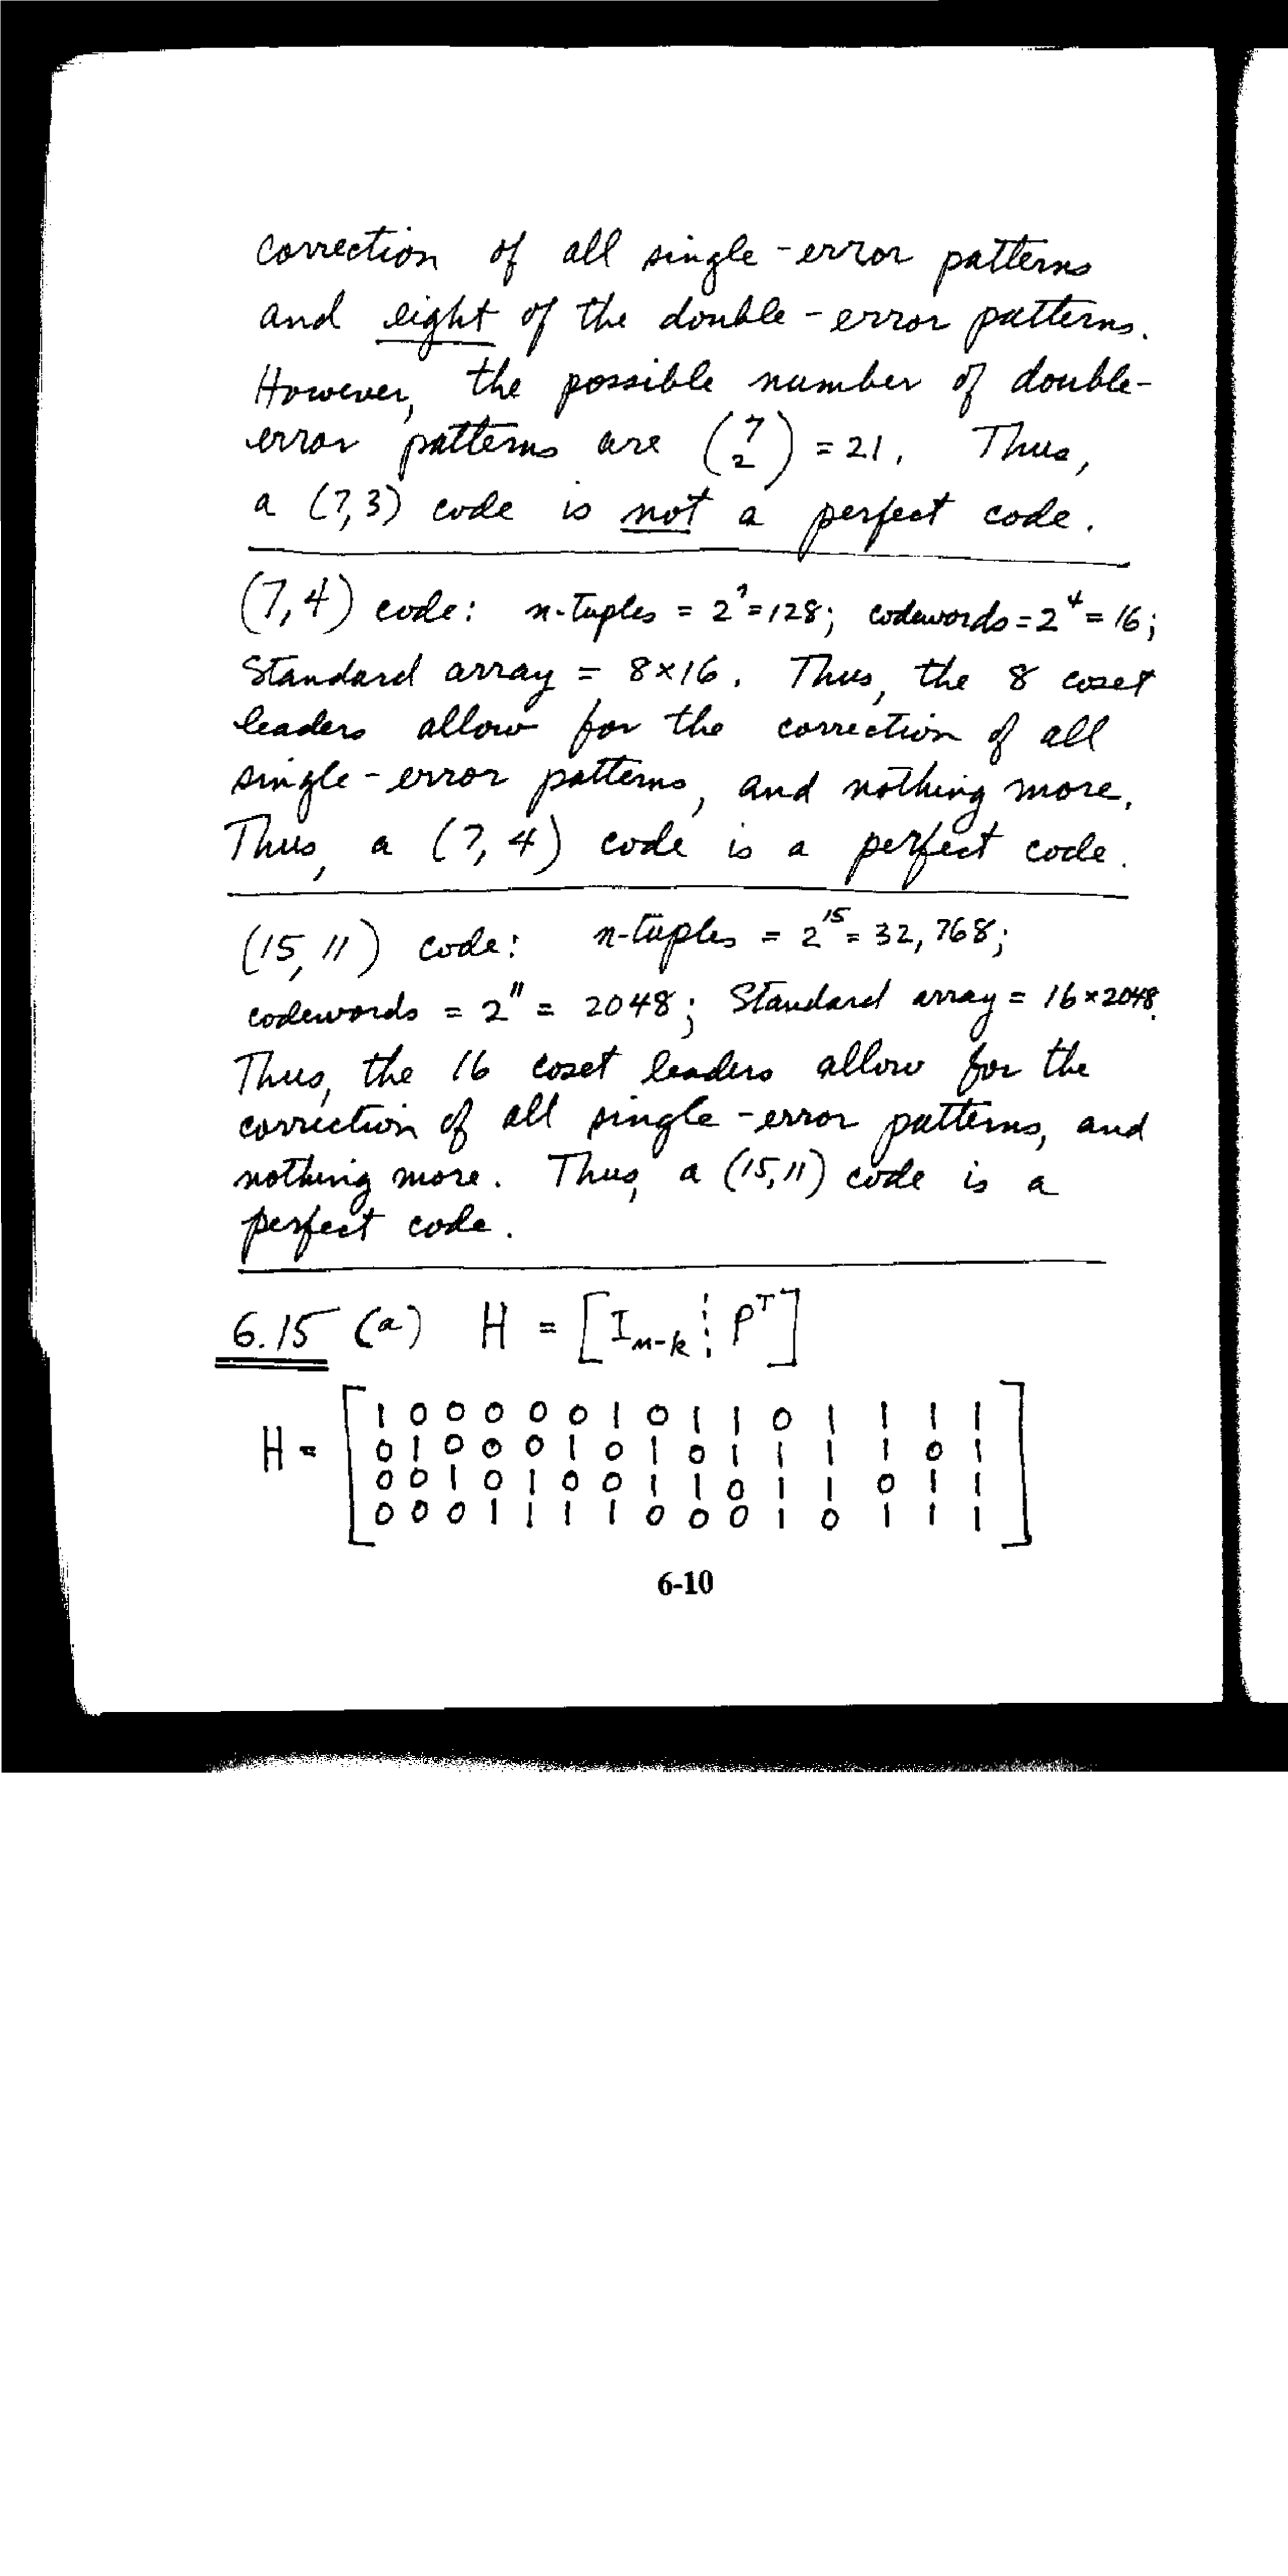 correction of all single-error patterns
and eight of the double-error patterns.
However, the possible number of double-
error patterns are (7 2) = 21. Thus,
a (7,3) code is not a perfect code.
(7,4) code: n-tuples = 2^7 = 128; codewords = 2^4 = 16;
Standard array = 8×16. Thus, the 8 coset
leaders allow for the correction of all
single-error patterns, and nothing more.
Thus, a (7,4) code is a perfect code.
(15,11) code: n-tuples = 2^15 = 32,768;
codewords = 2^11 = 2048; Standard array = 16×2048.
Thus, the 16 coset leaders allow for the
correction of all single-error patterns, and
nothing more. Thus, a (15,11) code is a
perfect code.
6.15 (a) H = [I_{n-k} ⋮ P^T]
H = [
1 0 0 0 0 0 1 0 1 1 0 1 1 1 1
0 1 0 0 0 1 0 1 0 1 1 1 1 0 1
0 0 1 0 1 0 0 1 1 0 1 1 0 1 1
0 0 0 1 1 1 1 0 0 0 1 0 1 1 1
]
6-10